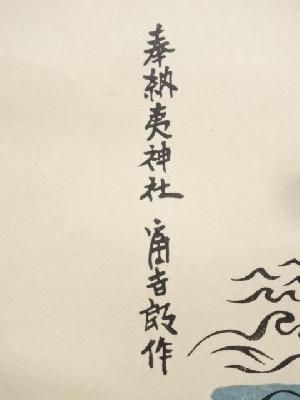 奉納夷神社 富吉郎作